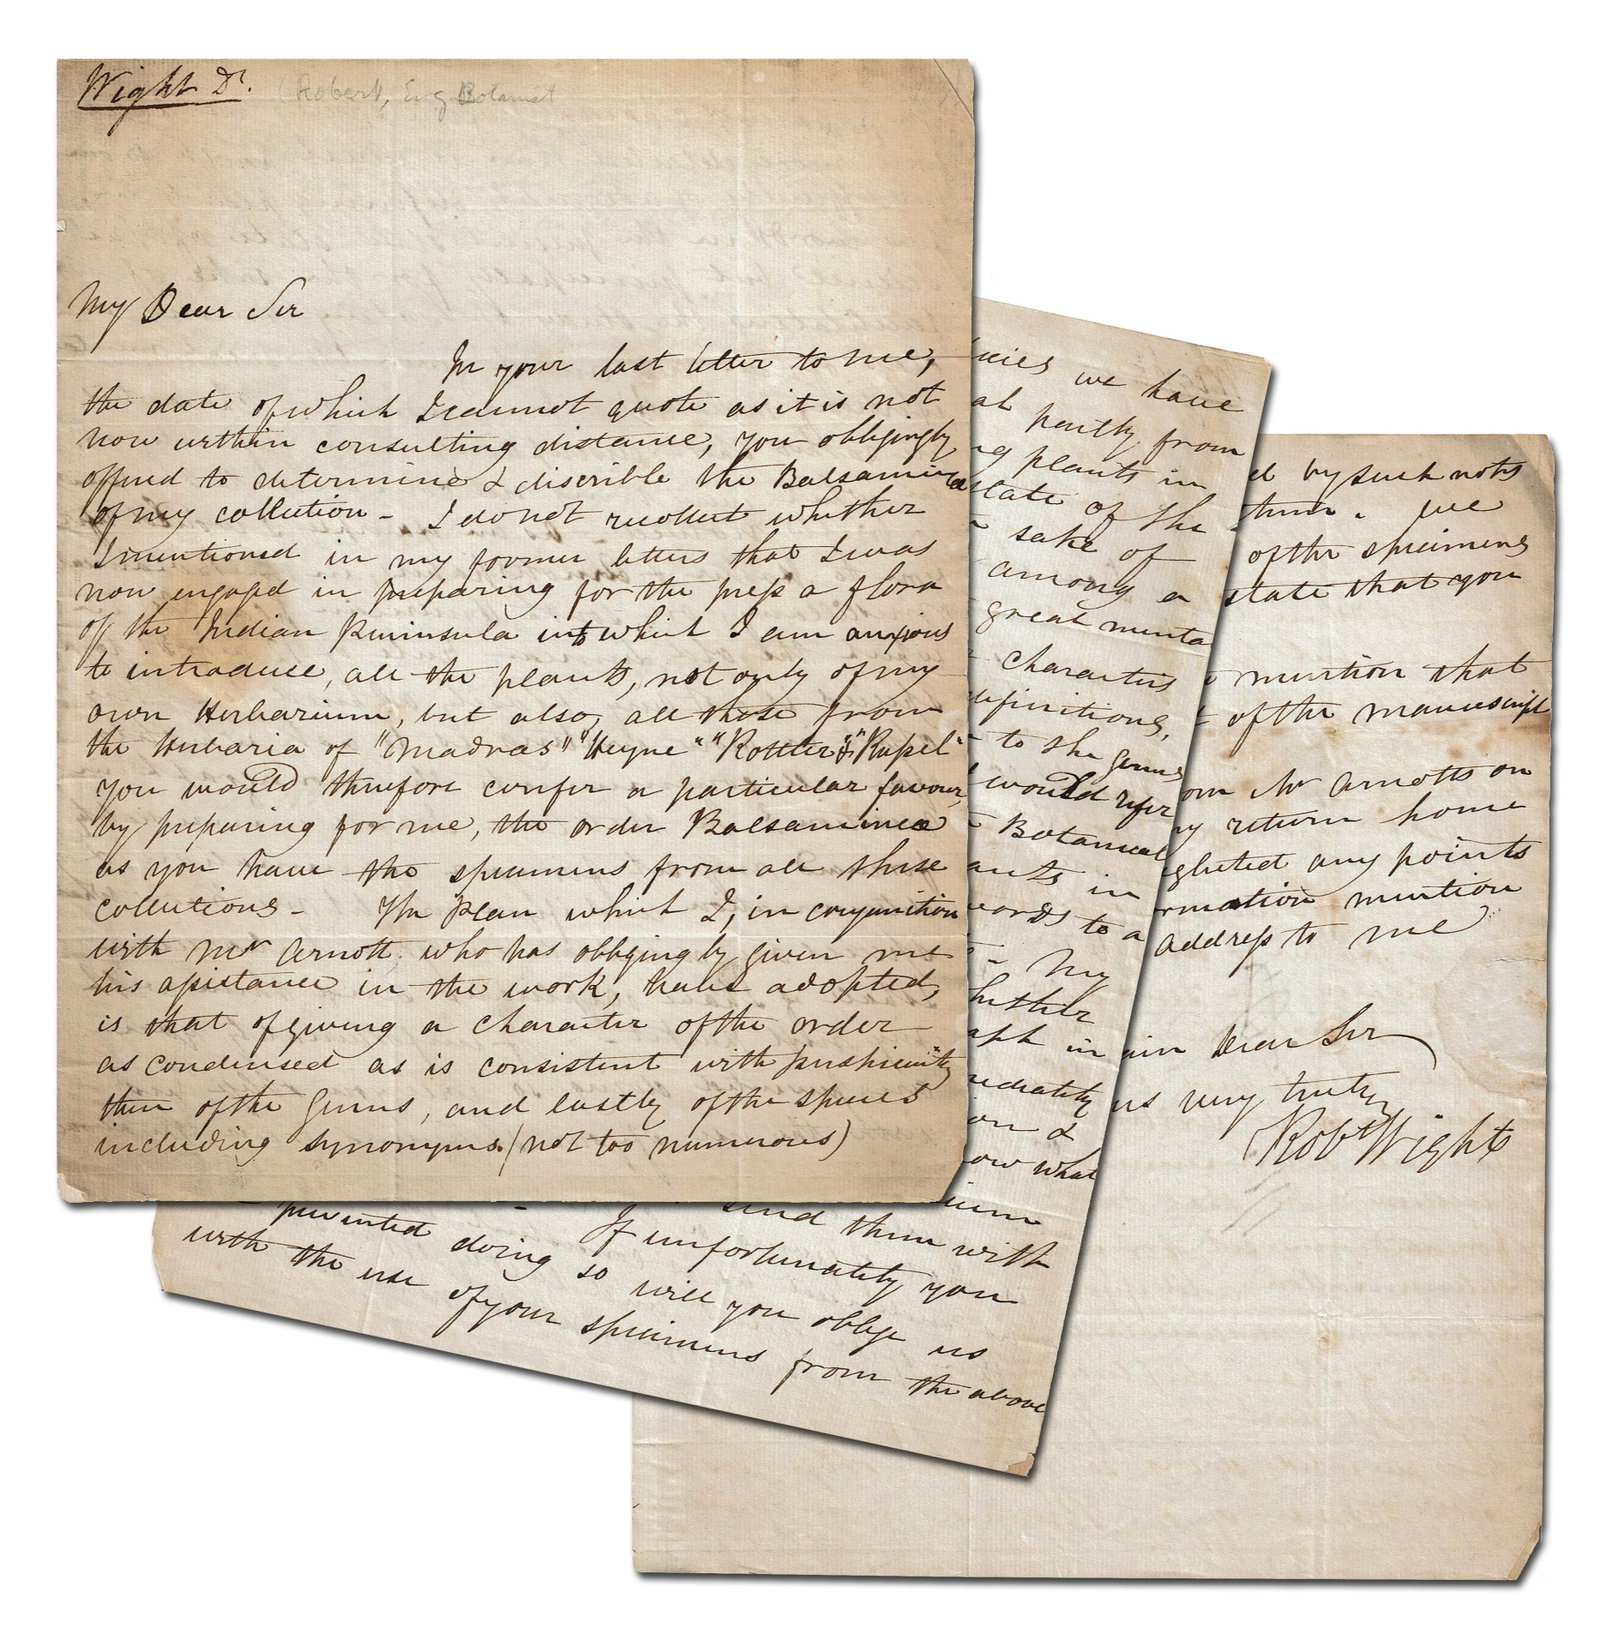 Wight Dr. (Robert, Eng Botanist
My Dear Sir
In your last letter to me,
the date of which I cannot quote as it is not
now within consulting distance, you obligingly
offered to determine & discrible the Balsamineae
of my collection - I do not recollect whether
I mentioned in my former letters that I was
now engaged in preparing for the press a flora
of the Indian peninsula into which I am anxious
to introduce, all the plants, not only of my
own Herbarium, but also, all those from
the Herbaria of "Madras" "Heyne" "Rottler" & "Russel"
you would therefore confer a particular favour,
by preparing for me, the order Balsamineae
as you have the specimens from all these
collections - The plan which I, in conjunction
with Mr Arnott, who has obligingly given me
his assistance in the work, have adopted,
is that of giving a character of the order
as condensed as is consistent with perspicuity
then of the Genus, and lastly of the species
including synonyms (not too numerous)
we have
partly from
plants in
state of the
sake of
among a
great
characters
definitions,
to the genus
would refer
Botanical
in
words to a
- My
in
&
what
send them with
If unfortunately you
prevented doing so will you oblige us
with the use of your specimens from the above
by such notes
them. we
of the specimens
state that you
mention that
of the manuscript
Mr Arnotts on
my return home
neglected any points
mention
address to me
Dear Sir
very truly
Robt Wight